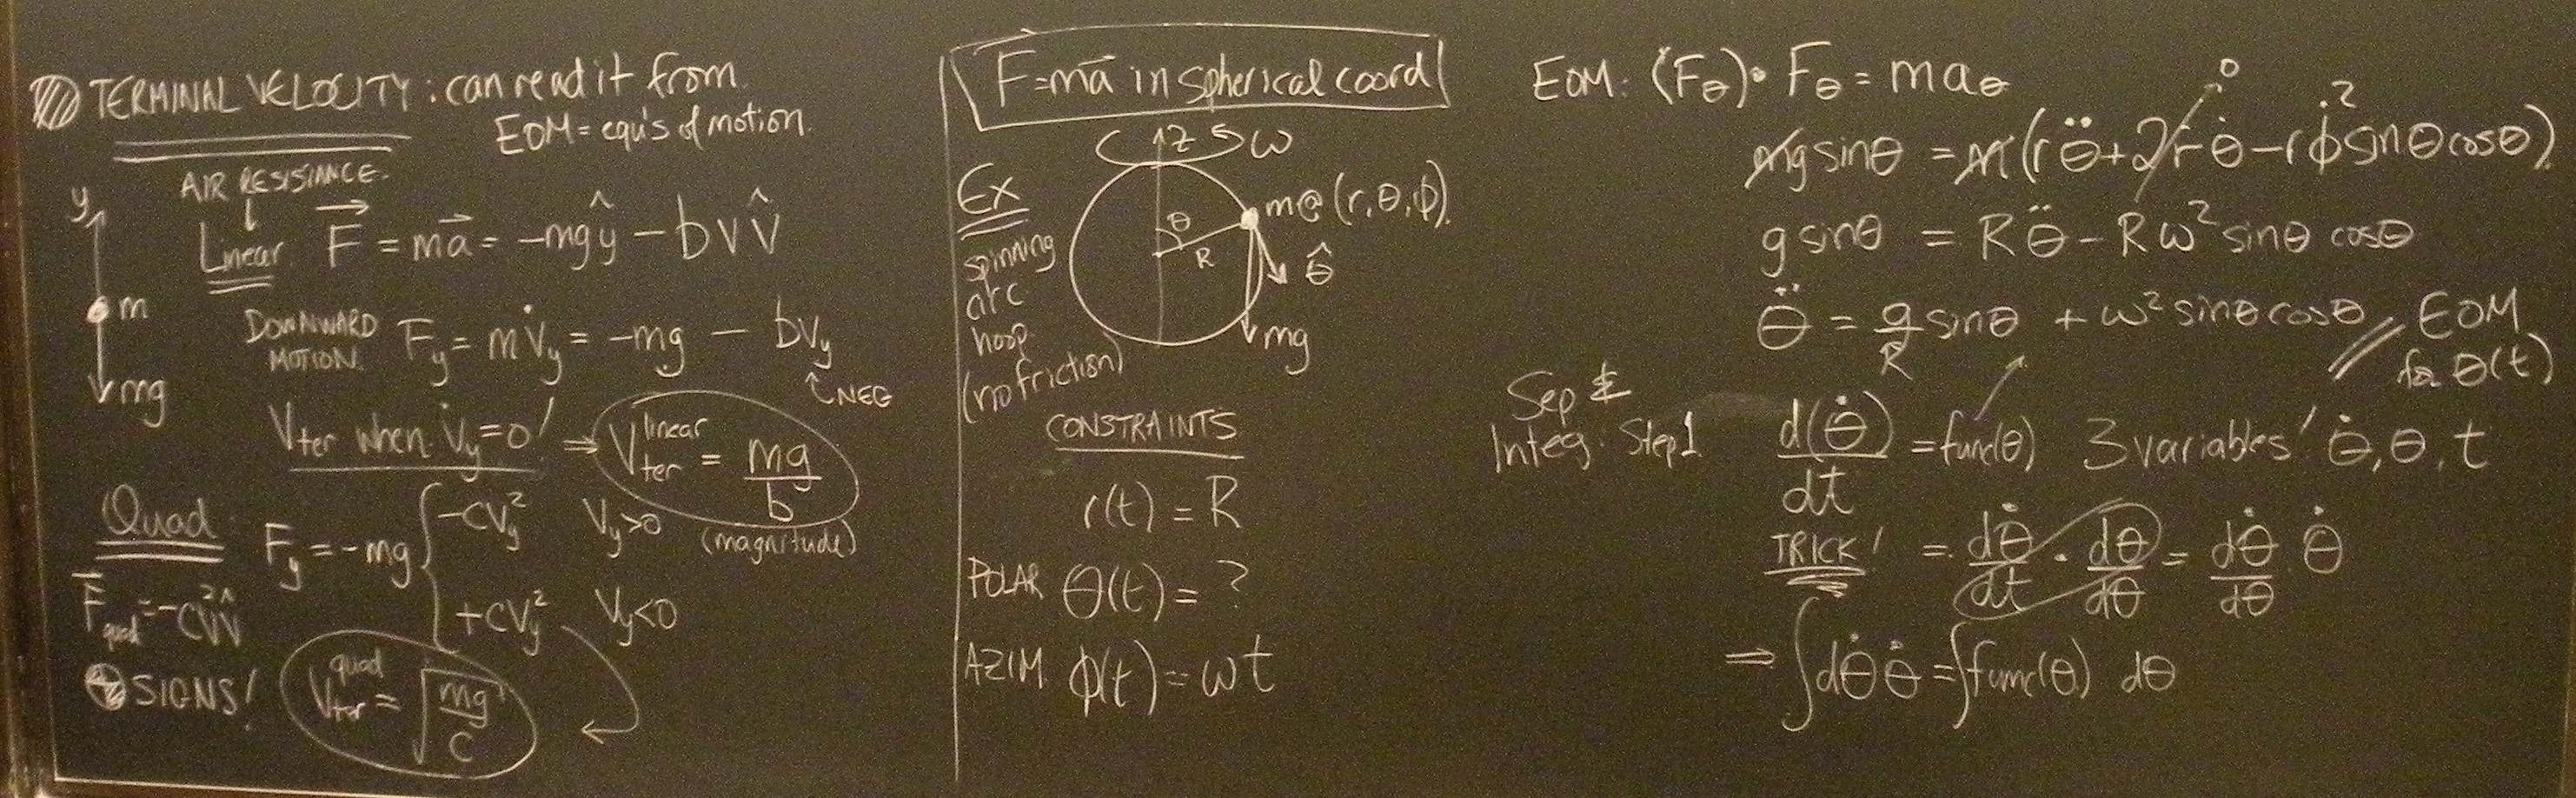 TERMINAL VELOCITY: can read it from
EOM = equ's of motion.
AIR RESISTANCE.
↓
y
Linear F⃗ = ma⃗ = -mgŷ - bv v̂
m
mg
DOWNWARD MOTION. F_y = m v̇_y = -mg - bv_y
↑ NEG
V_ter when v̇_y = 0! ⇒ V_ter^linear = mg/b
(magnitude)
Quad F_y = -mg { -cv_y² V_y>0
+cv_y² V_y<0
F⃗_quad = -cv²v̂
SIGNS!
V_ter^quad = √(mg/c)
F⃗=ma⃗ in spherical coord
z ω
Ex
spinning
arc
hoop
(no friction)
m@(r,θ,ϕ)
θ
R
θ̂
mg
CONSTRAINTS
r(t) = R
POLAR θ(t) = ?
AZIM ϕ(t) = ωt
EOM: (F_θ). F_θ = ma_θ
mg sinθ = m(rθ̈ + 2ṙθ̇ - rϕ̇² sinθ cosθ)
0
g sinθ = Rθ̈ - Rω² sinθ cosθ
θ̈ = g/R sinθ + ω² sinθ cosθ // EOM
for θ(t)
Sep &
Integ. Step 1 d(θ̇)/dt = func(θ) 3 variables! θ̇, θ, t
TRICK! = dθ̇/dt · dθ/dθ = dθ̇/dθ θ̇
⇒ ∫dθ̇ θ̇ = ∫func(θ) dθ